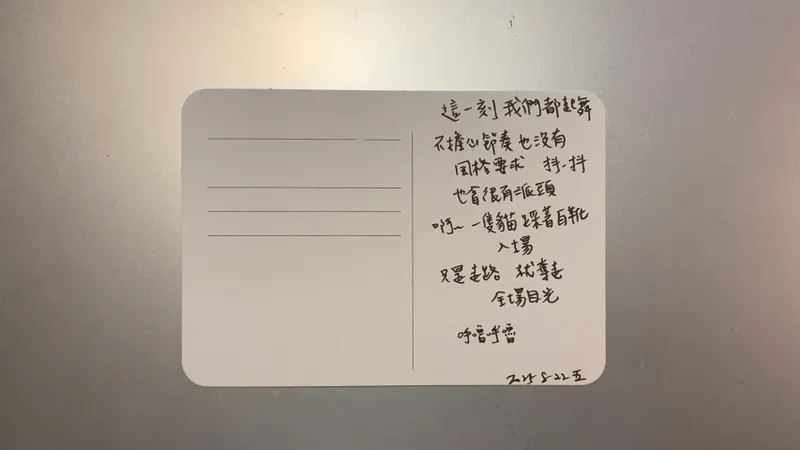 這一刻 我們都起舞
不擔心節奏也沒有
風格要求 抖一抖
也會很有派頭
啊~ 一隻貓踩着白靴
入場
只是走路 就奪走
全場目光
呼嚕呼嚕
2025 8-22 五